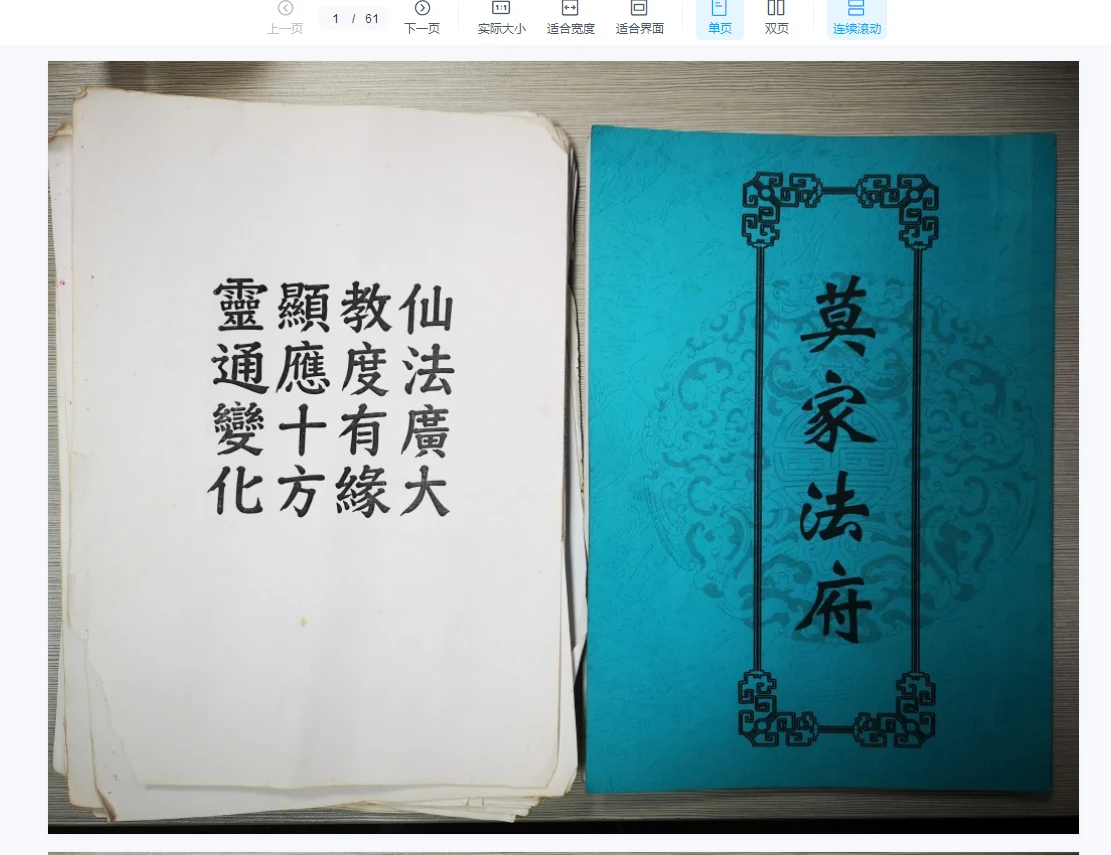 上一页
1 / 61
下一页
实际大小
适合宽度
适合界面
单页
双页
连续滚动
仙法廣大
教度有緣
顯應十方
靈通變化
莫家法府